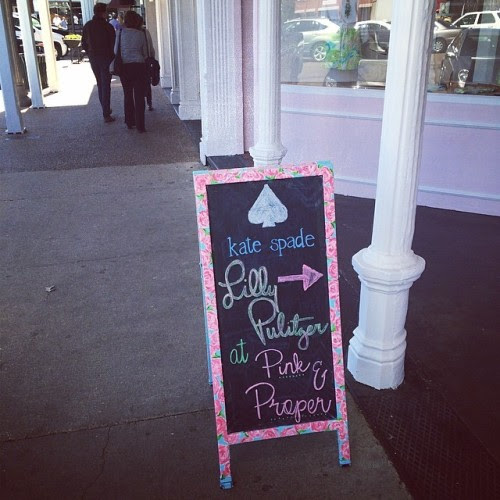 kate spade
Lilly
Pulitzer
at Pink &
Proper